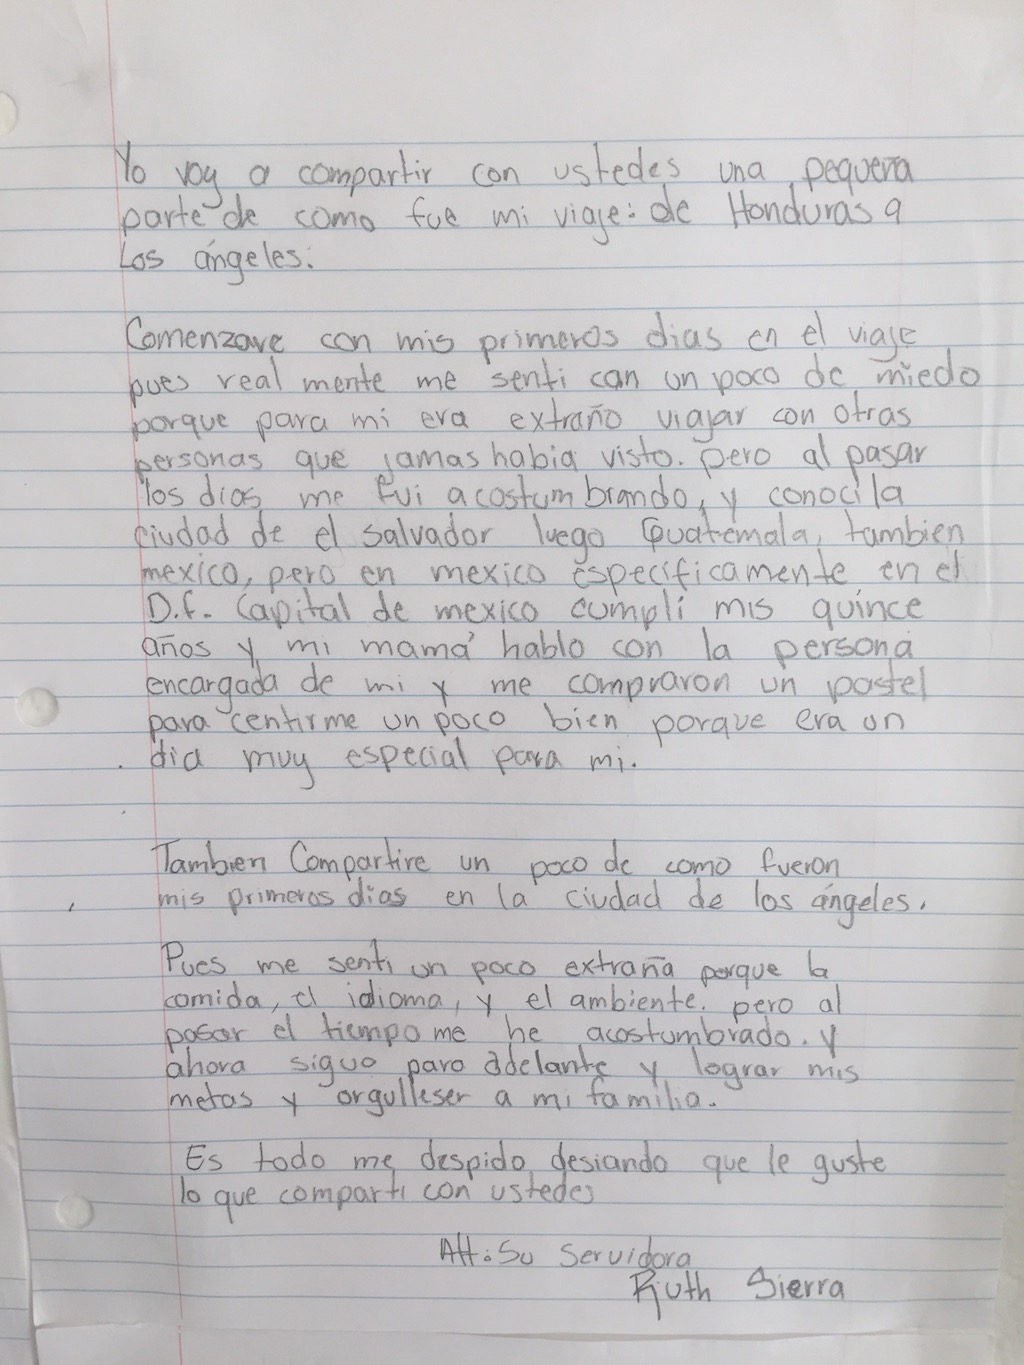 Yo voy a compartir con ustedes una pequeña
parte de como fue mi viaje: de Honduras a
Los ángeles.
Comenzare con mis primeros dias en el viaje
pues real mente me senti can un poco de miedo
porque para mi era extraño viajar con otras
personas que jamas habia visto. pero al pasar
los dias me fui acostumbrando, y conoci la
ciudad de el salvador luego Guatemala, tambien
mexico, pero en mexico específicamente en el
D.f. Capital de mexico cumplí mis quince
años y mi mamá hablo con la persona
encargada de mi y me compraron un pastel
para centirme un poco bien porque era un
dia muy especial para mi.
Tambien Compartire un poco de como fueron
mis primeros dias en la ciudad de los ángeles.
Pues me senti un poco extraña porque la
comida, el idioma, y el ambiente. pero al
pasar el tiempo me he acostumbrado. y
ahora siguo para adelante y lograr mis
metas y orgulleser a mi familia.
Es todo me despido desiando que le guste
lo que comparti con ustedes
Att: Su Servidora
Ruth Sierra